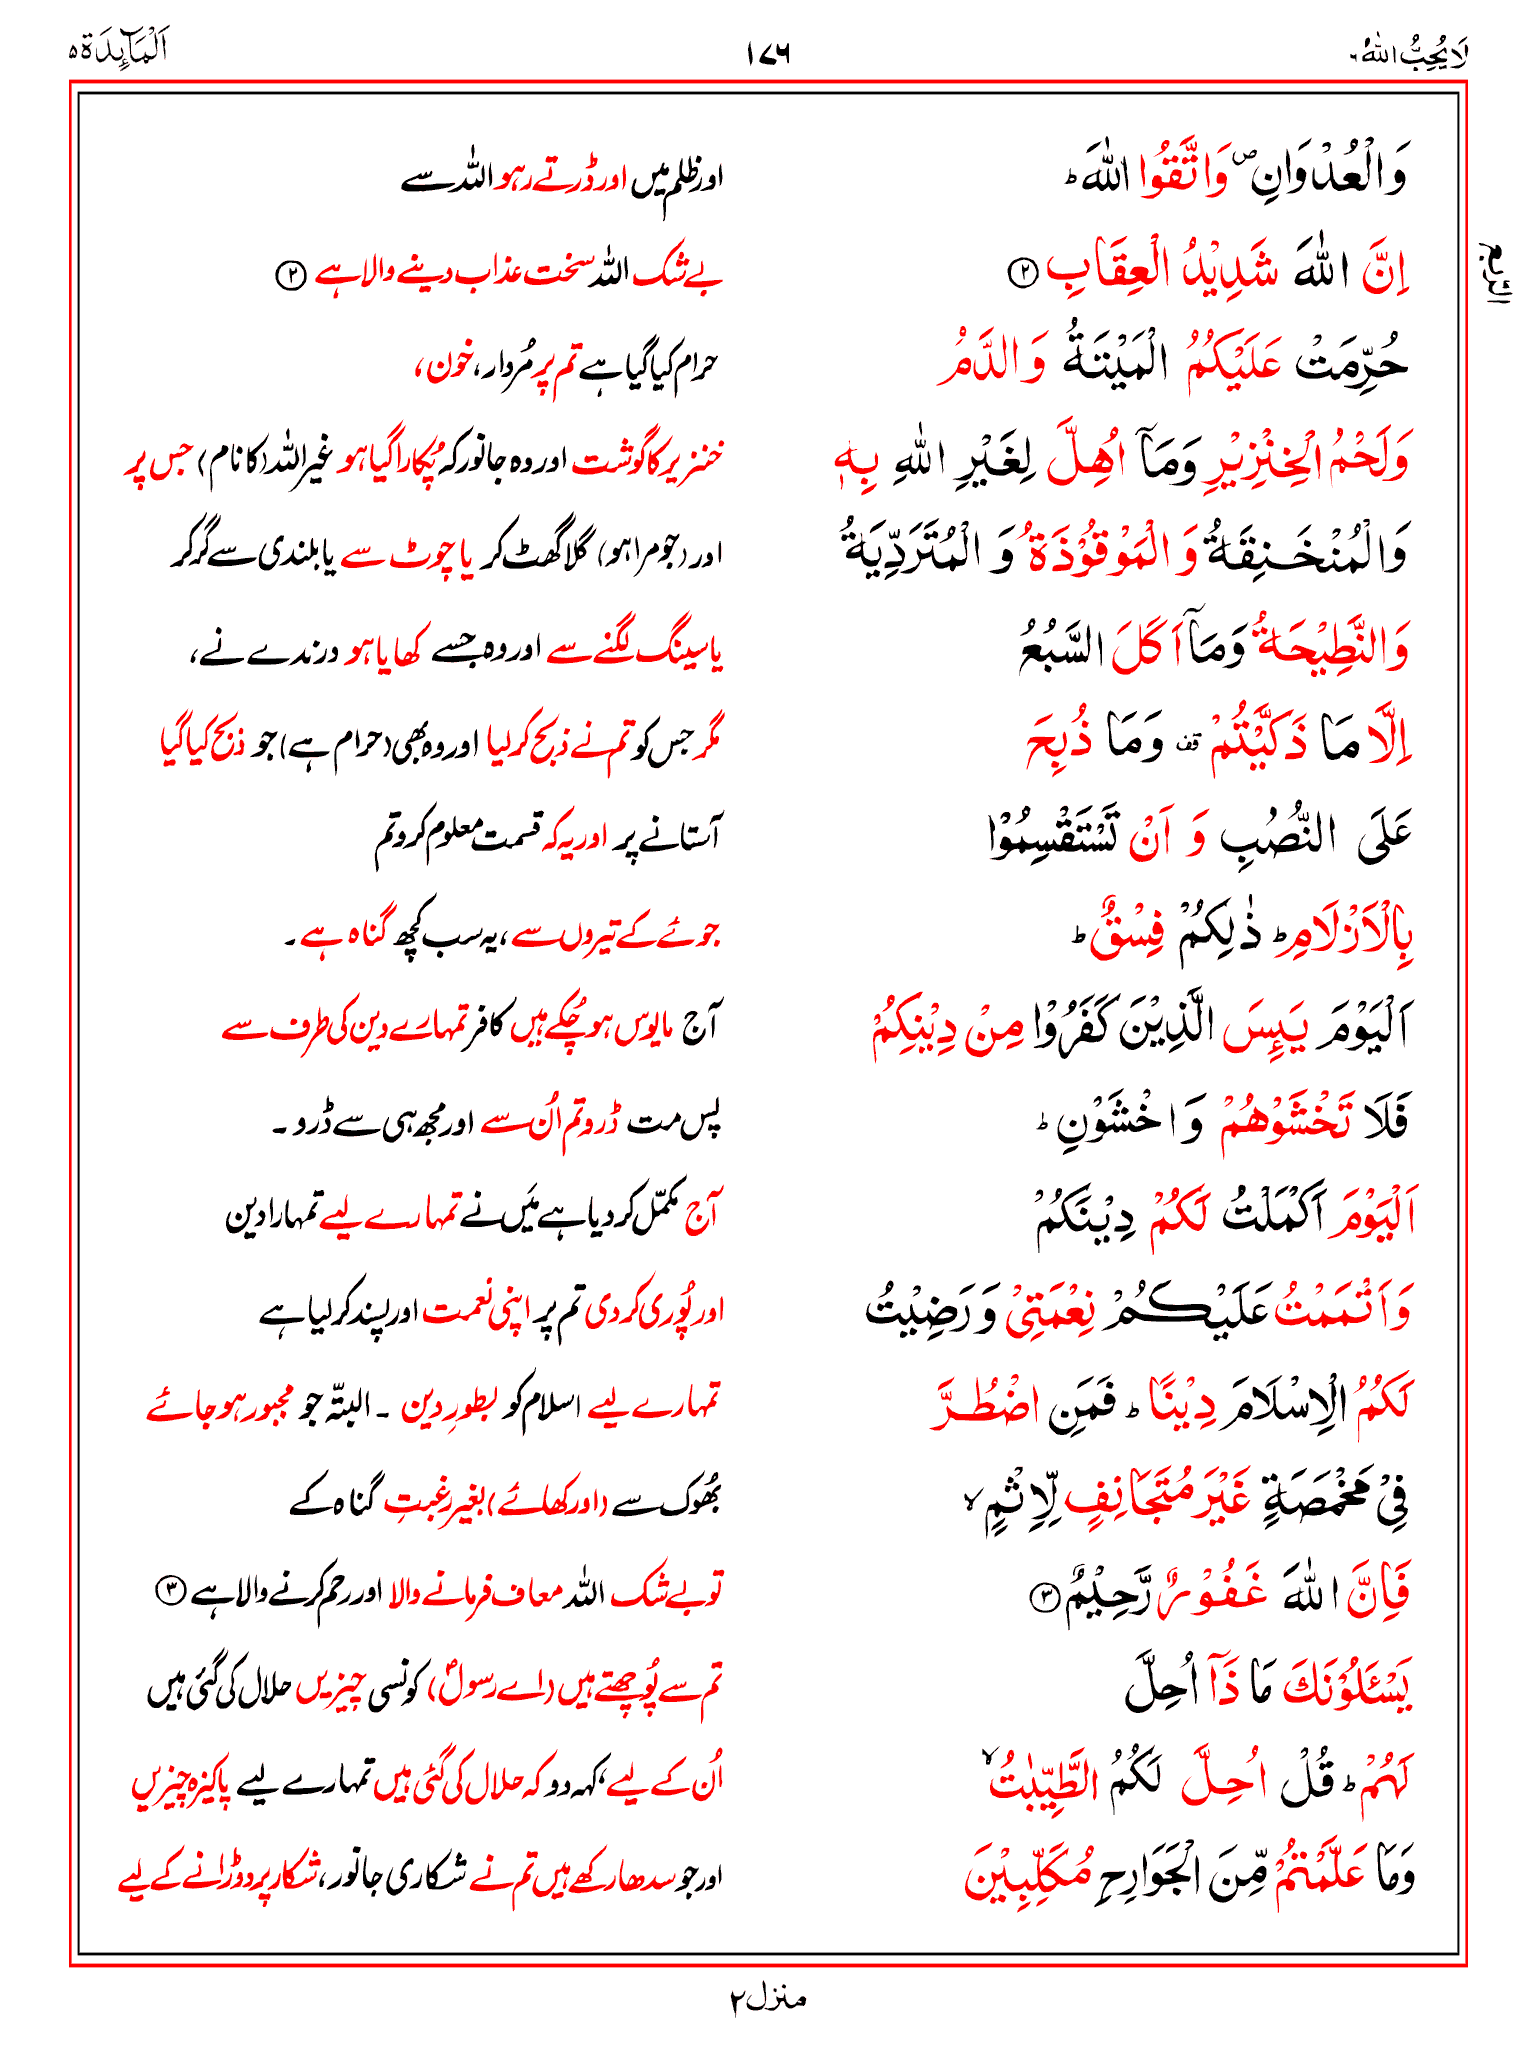 لَا يُحِبُّ اللّٰهُ ۶
۱۷۶
اَلْمَآئِدَة ۵
وَالْعُدْوَانِ ۪ وَاتَّقُوا اللّٰهَ ؕ
اور ظلم میں اور ڈرتے رہو اللہ سے
اِنَّ اللّٰهَ شَدِيْدُ الْعِقَابِ ②
بے شک اللہ سخت عذاب دینے والا ہے ②
الربع
حُرِّمَتْ عَلَيْكُمُ الْمَيْتَةُ وَالدَّمُ
حرام کیا گیا ہے تم پر مُردار، خون،
وَلَحْمُ الْخِنْزِيْرِ وَمَآ اُهِلَّ لِغَيْرِ اللّٰهِ بِهٖ
خنزیر کا گوشت اور وہ جانور کہ پُکارا گیا ہو غیر اللہ (کا نام) جس پر
وَالْمُنْخَنِقَةُ وَالْمَوْقُوْذَةُ وَالْمُتَرَدِّيَةُ
اور (جو مرا ہو) گلا گھٹ کر یا چوٹ سے یا بلندی سے گر کر
وَالنَّطِيْحَةُ وَمَآ اَكَلَ السَّبُعُ
یا سینگ لگنے سے اور وہ جسے کھایا ہو درندے نے،
اِلَّا مَا ذَكَّيْتُمْ قف وَمَا ذُبِحَ
مگر جس کو تم نے ذبح کر لیا اور وہ بھی (حرام ہے) جو ذبح کیا گیا
عَلَى النُّصُبِ وَ اَنْ تَسْتَقْسِمُوْا
آستانے پر اور یہ کہ قسمت معلوم کرو تم
بِالْاَزْلَامِ ؕ ذٰلِكُمْ فِسْقٌ ؕ
جوئے کے تیروں سے، یہ سب کچھ گناہ ہے۔
اَلْيَوْمَ يَىِٕسَ الَّذِيْنَ كَفَرُوْا مِنْ دِيْنِكُمْ
آج مایوس ہو چُکے ہیں کافر تمہارے دین کی طرف سے
فَلَا تَخْشَوْهُمْ وَاخْشَوْنِ ؕ
پس مت ڈرو تم اُن سے اور مجھ ہی سے ڈرو۔
اَلْيَوْمَ اَكْمَلْتُ لَكُمْ دِيْنَكُمْ
آج مکمّل کر دیا ہے میَں نے تمہارے لیے تمہارا دین
وَاَتْمَمْتُ عَلَيْكُمْ نِعْمَتِىْ وَرَضِيْتُ
اور پُوری کر دی تم پر اپنی نعمت اور پسند کر لیا ہے
لَكُمُ الْاِسْلَامَ دِيْنًا ؕ فَمَنِ اضْطُرَّ
تمہارے لیے اسلام کو بطورِ دین ۔ البتّہ جو مجبور ہو جائے
فِىْ مَخْمَصَةٍ غَيْرَ مُتَجَانِفٍ لِّاِثْمٍ ۙ
بُھوک سے (اور کھائے) بغیر رغبتِ گناہ کے
فَاِنَّ اللّٰهَ غَفُوْرٌ رَّحِيْمٌ ③
تو بے شک اللہ معاف فرمانے والا اور رحم کرنے والا ہے ③
يَسْـَٔلُوْنَكَ مَا ذَآ اُحِلَّ
تم سے پُوچھتے ہیں (اے رسولؐ) کونسی چیزیں حلال کی گئی ہیں
لَهُمْ ؕ قُلْ اُحِلَّ لَكُمُ الطَّيِّبٰتُ ۙ
اُن کے لیے، کہہ دو کہ حلال کی گئی ہیں تمہارے لیے پاکیزہ چیزیں
وَمَا عَلَّمْتُمْ مِّنَ الْجَوَارِحِ مُكَلِّبِيْنَ
اور جو سدھا رکھے ہیں تم نے شکاری جانور، شکار پر دوڑانے کے لیے
منزل ۲